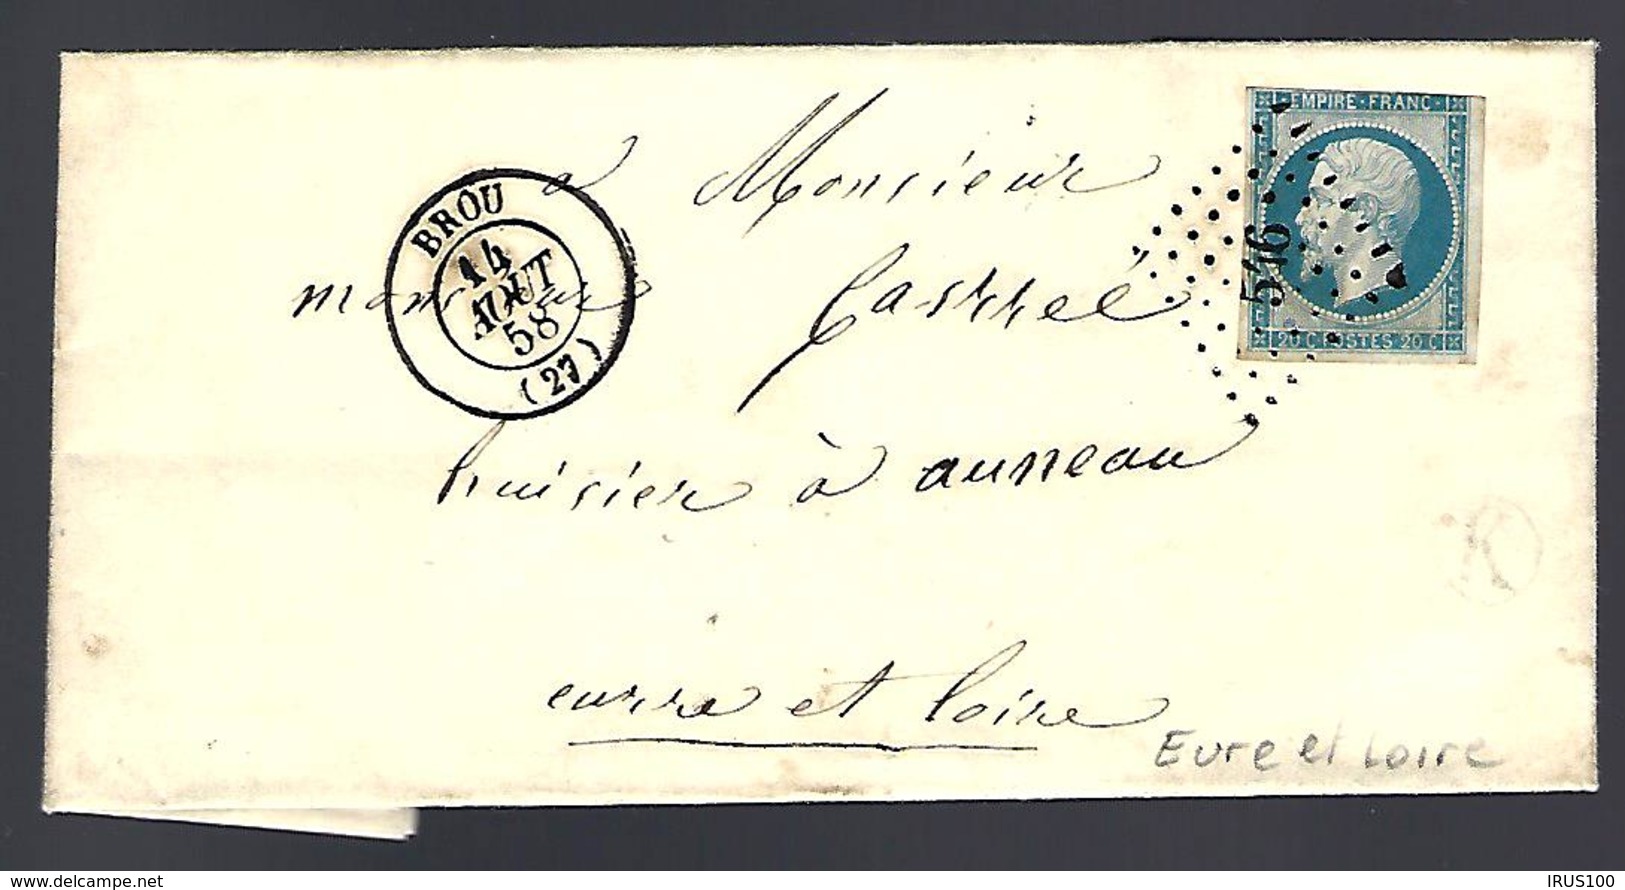 BROU
14
AOUT
58
(27)
EMPIRE FRANC
546
20 C POSTES 20 C
à Monsieur
monsieur Casrreé
huisier à auneau
eurre et loire
Eure et Loire
www.delcampe.net
IRUS100